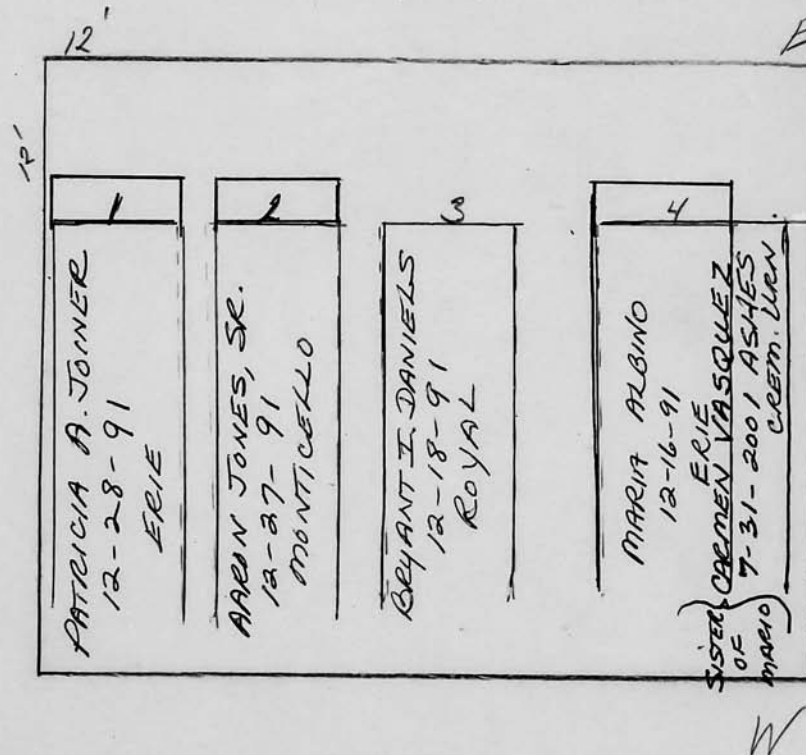 12'
12'
1
PATRICIA A. JOINER
12-28-91
ERIE
2
AARON JONES, SR.
12-27-91
MONTICELLO
3
BRYANT I. DANIELS
12-18-91
ROYAL
4
MARIA ALBINO
12-16-91
ERIE
CARMEN VASQUEZ
7-31-2001 ASHES
CREM. URN
SISTER
OF
MARIO
W